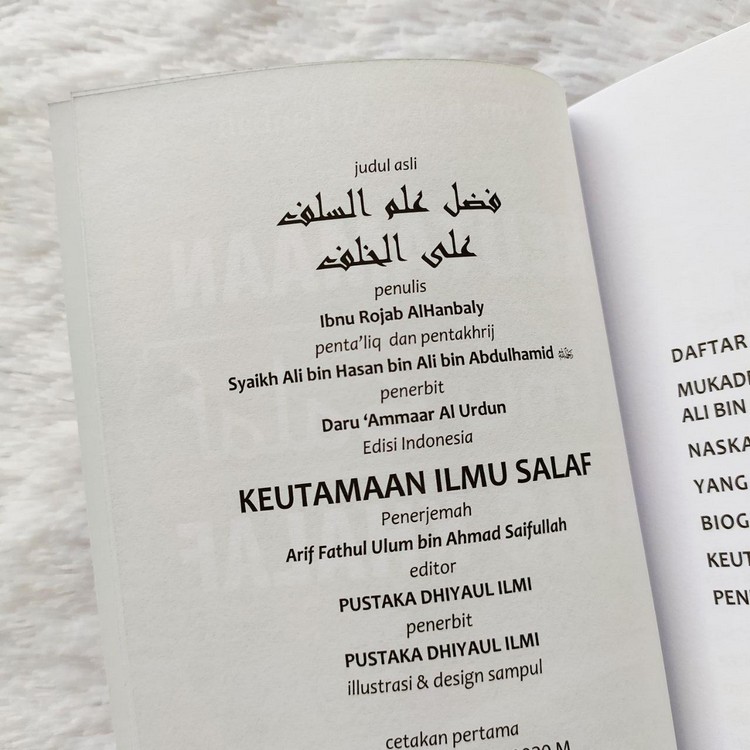 judul asli
فضل علم السلف
على الخلف
penulis
Ibnu Rojab AlHanbaly
penta'liq dan pentakhrij
Syaikh Ali bin Hasan bin Ali bin Abdulhamid
penerbit
Daru 'Ammaar Al Urdun
Edisi Indonesia
KEUTAMAAN ILMU SALAF
Penerjemah
Arif Fathul Ulum bin Ahmad Saifullah
editor
PUSTAKA DHIYAUL ILMI
penerbit
PUSTAKA DHIYAUL ILMI
illustrasi & design sampul
cetakan pertama
DAFTAR
ALI BIN
YANG